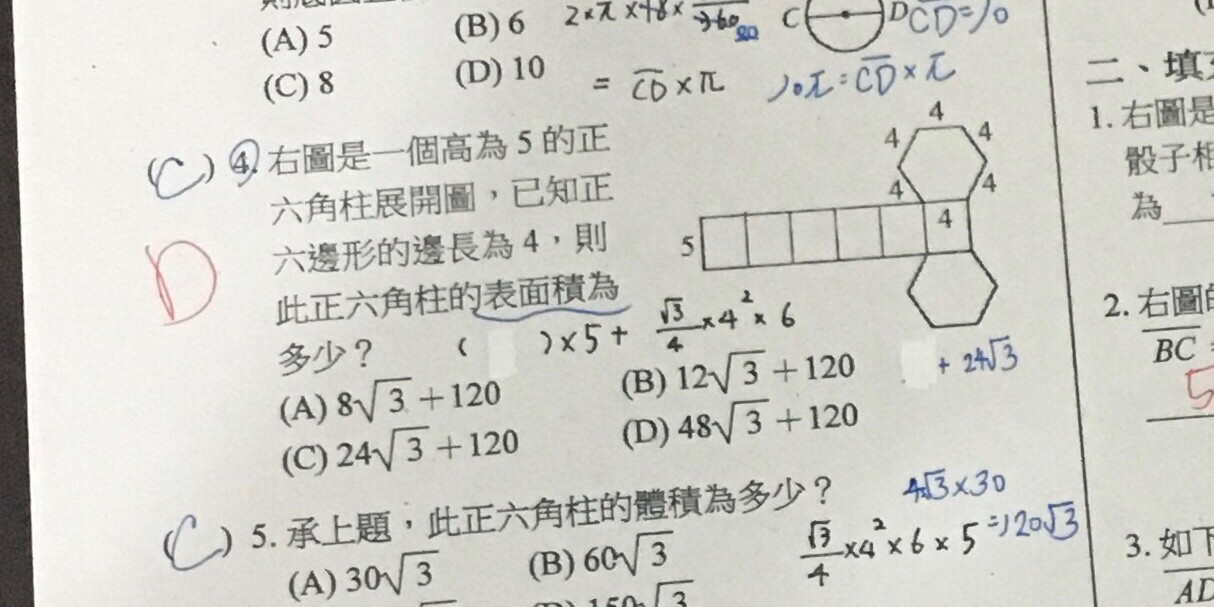 (A) 5 (B) 6 2×π×48×
360 C D CD=10
(C) 8 (D) 10 = CD×π 10π=CD×π
(C) 4. 右圖是一個高為 5 的正
六角柱展開圖，已知正
D 六邊形的邊長為 4，則
此正六角柱的表面積為
多少？ ( )×5+ √3/4 ×4²×6
+ 24√3
(A) 8√3+120 (B) 12√3+120
(C) 24√3+120 (D) 48√3+120
4 4 4 4 4 4
5
(C) 5. 承上題，此正六角柱的體積為多少？ 4√3×30
√3/4 ×4²×6×5=120√3
(A) 30√3 (B) 60√3
150√3
二、填
1. 右圖是
骰子相
為
2. 右圖的
BC
5
3. 如下
AD